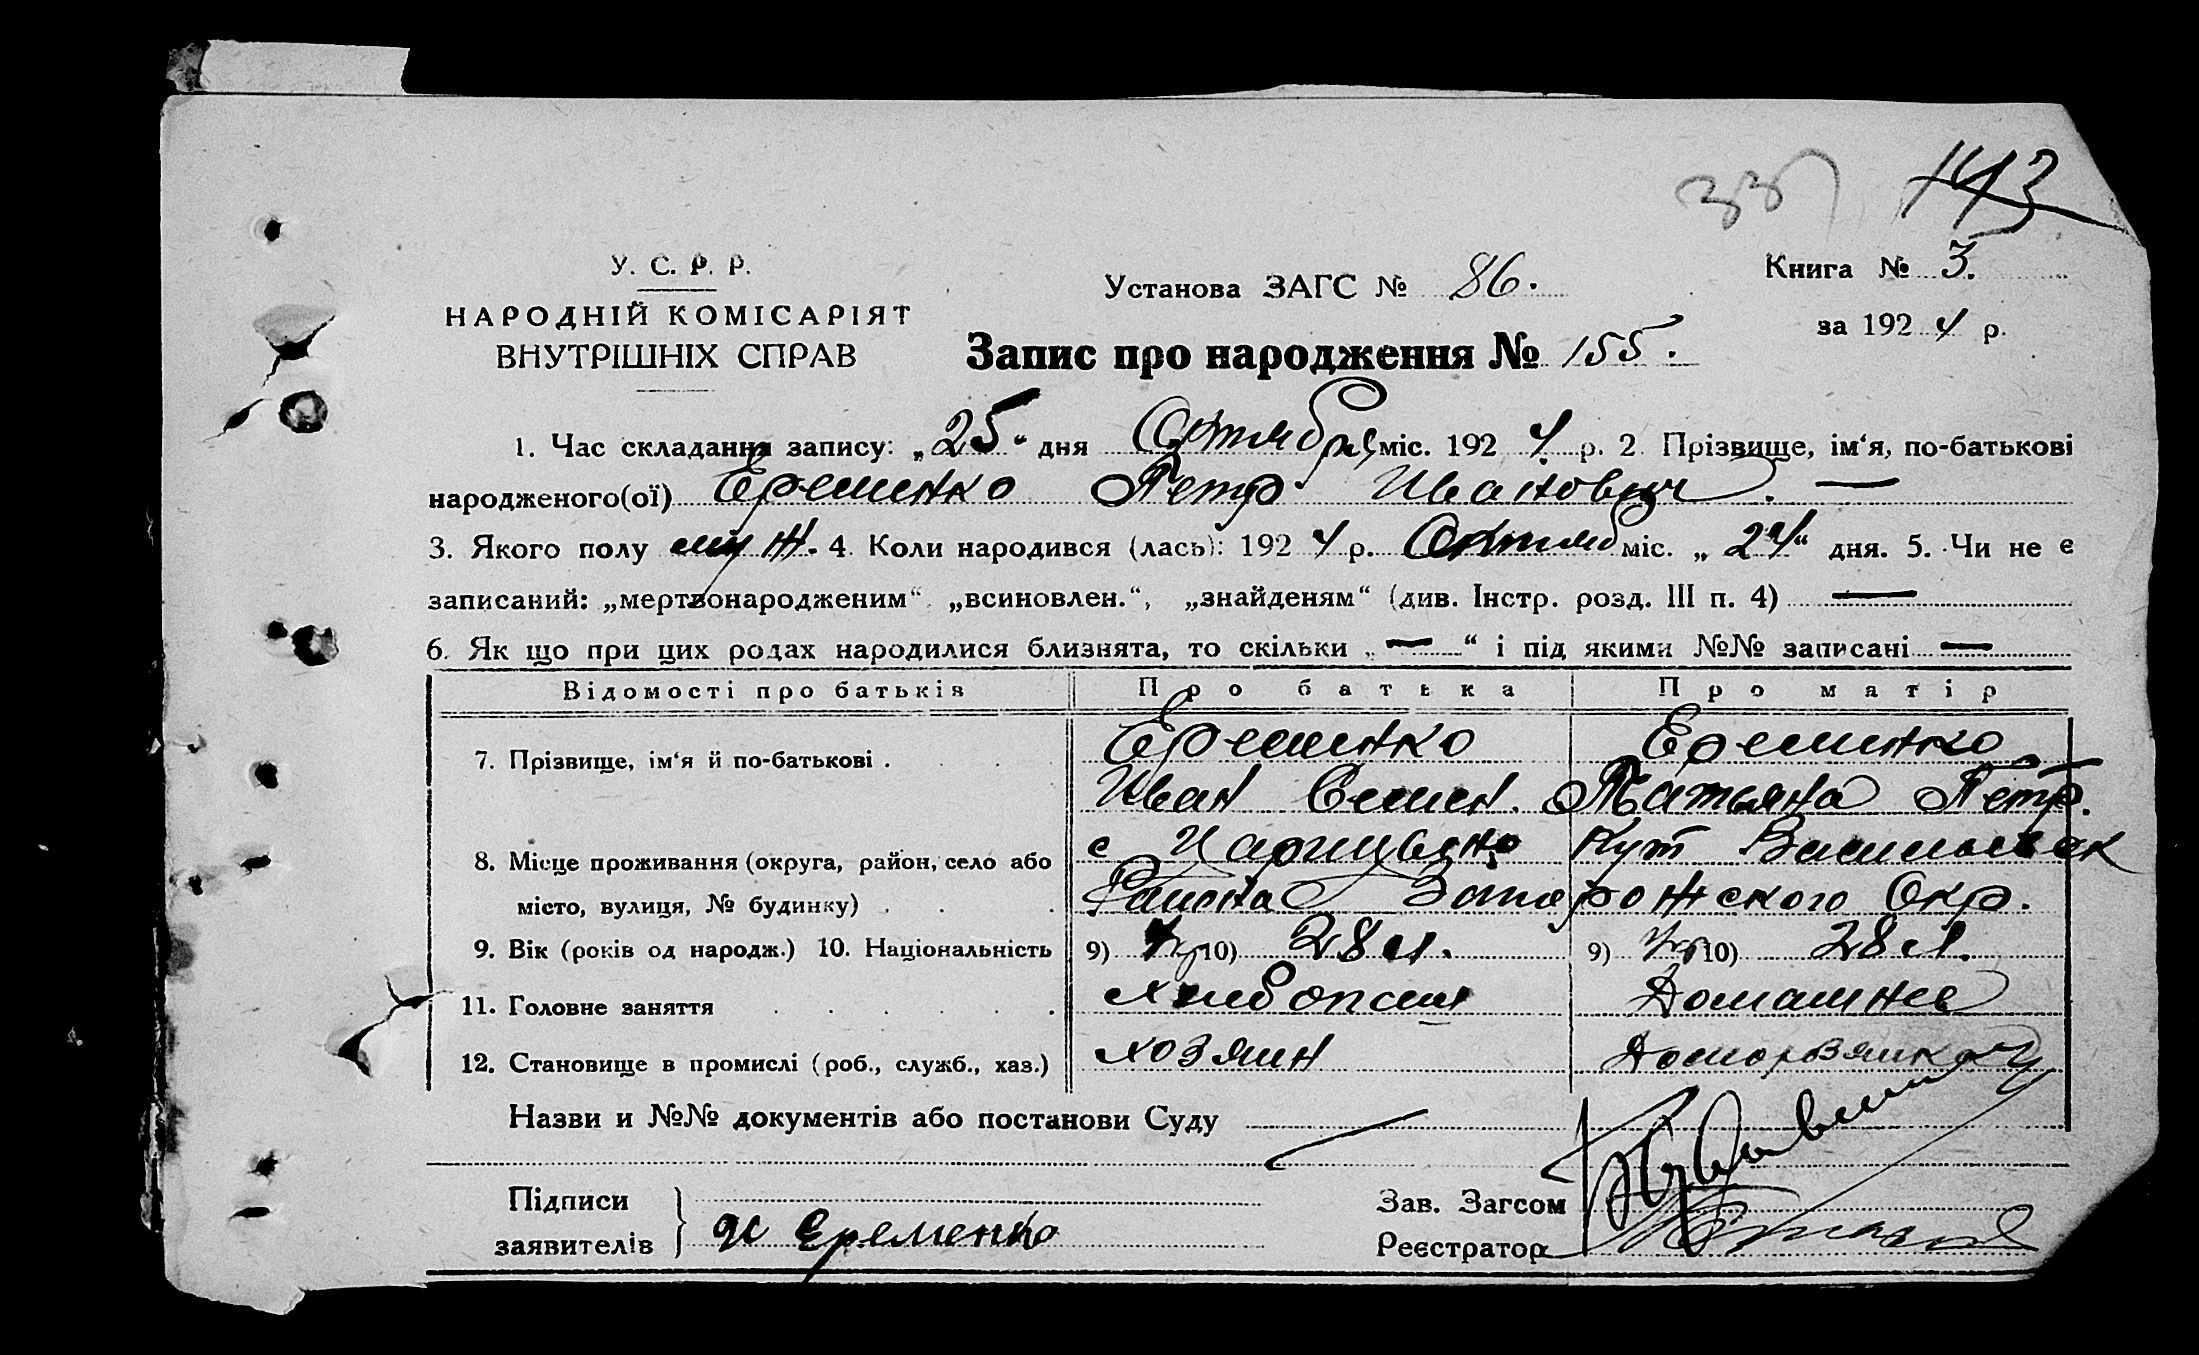 337 143
У. С. Р. Р.
НАРОДНІЙ КОМІСАРІЯТ
ВНУТРІШНІХ СПРАВ
Установа ЗАГС № 86.
Книга № 3.
за 1924 р.
Запис про народження № 155.
1. Час складання запису: „25“ дня Октября міс. 1924 р. 2. Прізвище, ім‘я, по-батькові
народженого(ої) Еременко Петр Иванович. —
3. Якого полу муж. 4. Коли народився (лась): 1924 р. Октяб міс. „24“ дня. 5. Чи не є
записаний: „мертвонародженим“, „всиновлен.“, „знайденям“ (див. Інстр. розд. III п. 4) —
6. Як що при цих родах народилися близнята, то скільки „—“ і під якими №№ записані —
Відомості про батьків Про батька Про матір
7. Прізвище, ім‘я й по-батькові . Еременко Еременко
Иван Семен. Татьяна Петр.
8. Місце проживання (округа, район, село або с Царицыно Кут Васильевск
місто, вулиця, № будинку) Района Запорожского Окр.
9. Вік (років од народж.) 10. Національність 9) 10) 28 л. 9) 10) 28 л.
11. Головне заняття Хлебопаш Домашнее
12. Становище в промислі (роб., служб., хаз.) хозяин
Назви и №№ документів або постанови Суду
Підписи
заявителів } И Еременко
Зав. Загсом
Реєстратор